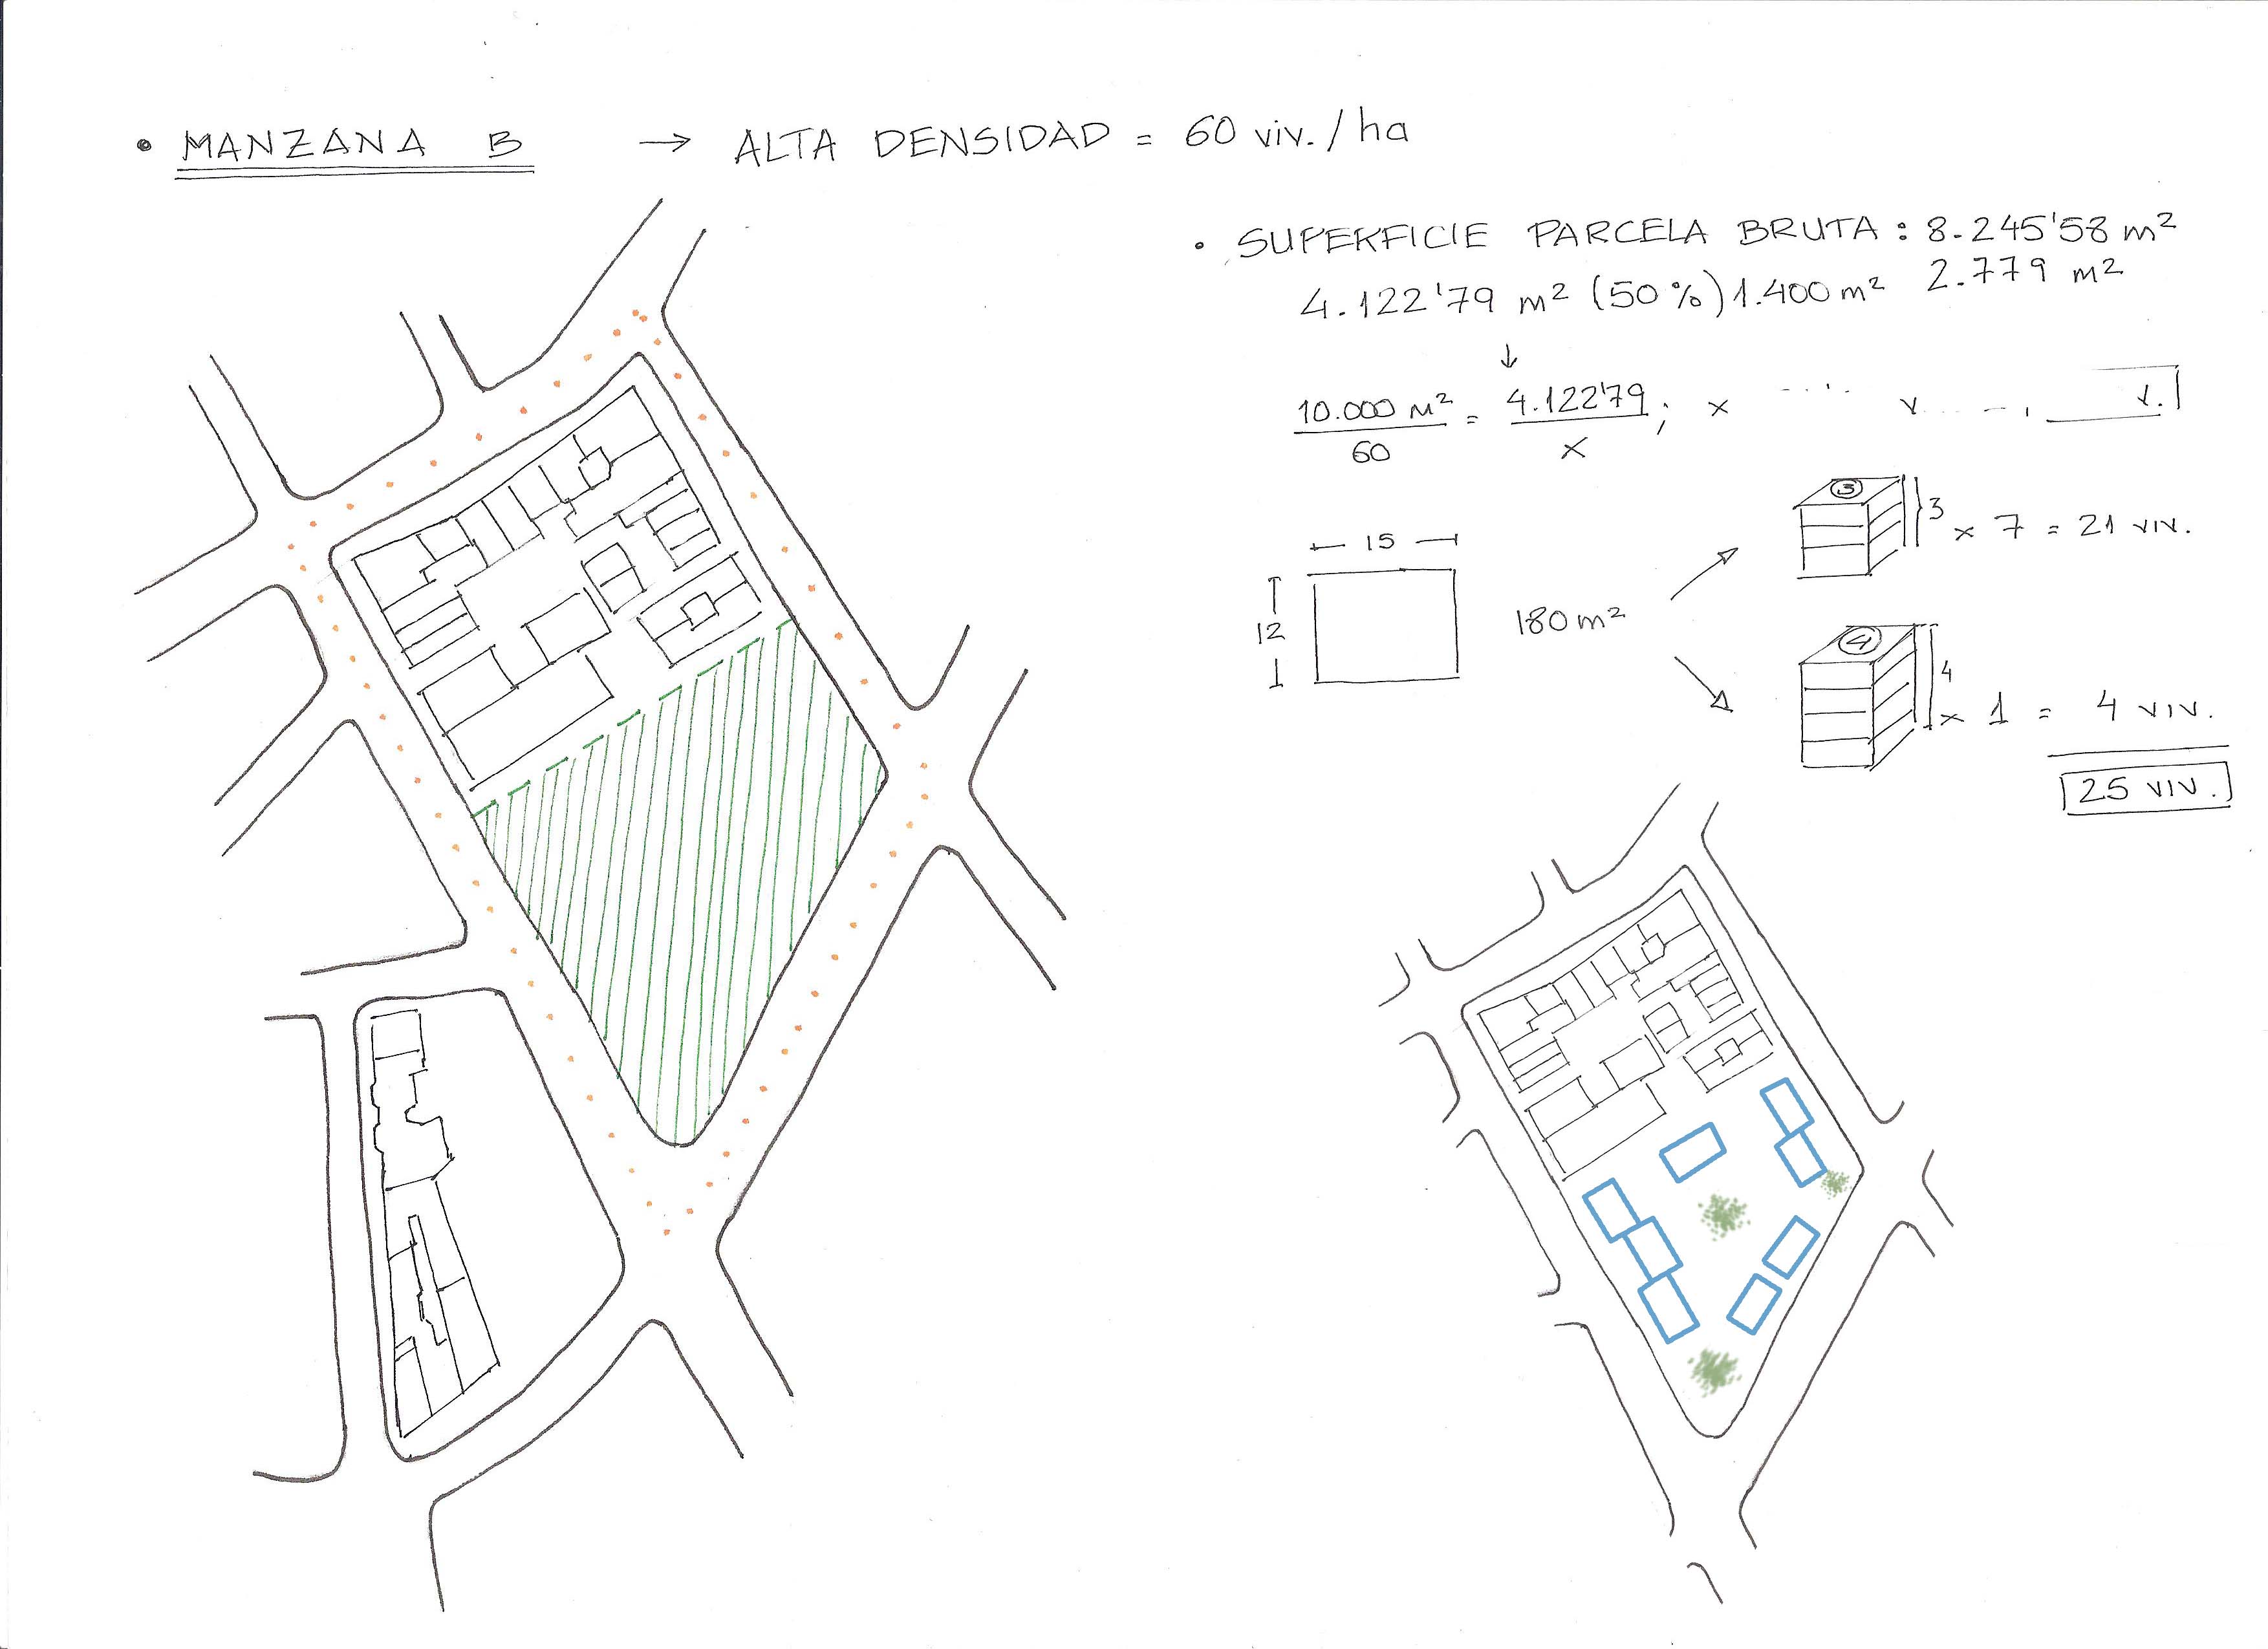 • MANZANA B → ALTA DENSIDAD = 60 viv./ha
• SUPERFICIE PARCELA BRUTA : 8.245'58 m²
4.122'79 m² (50%) 1.400 m² 2.779 m²
↓
10.000 m² / 60 = 4.122'79 / x ; x
15
12
180 m²
③ 3 x 7 = 21 VIV.
④ 4 x 1 = 4 VIV.
25 VIV.